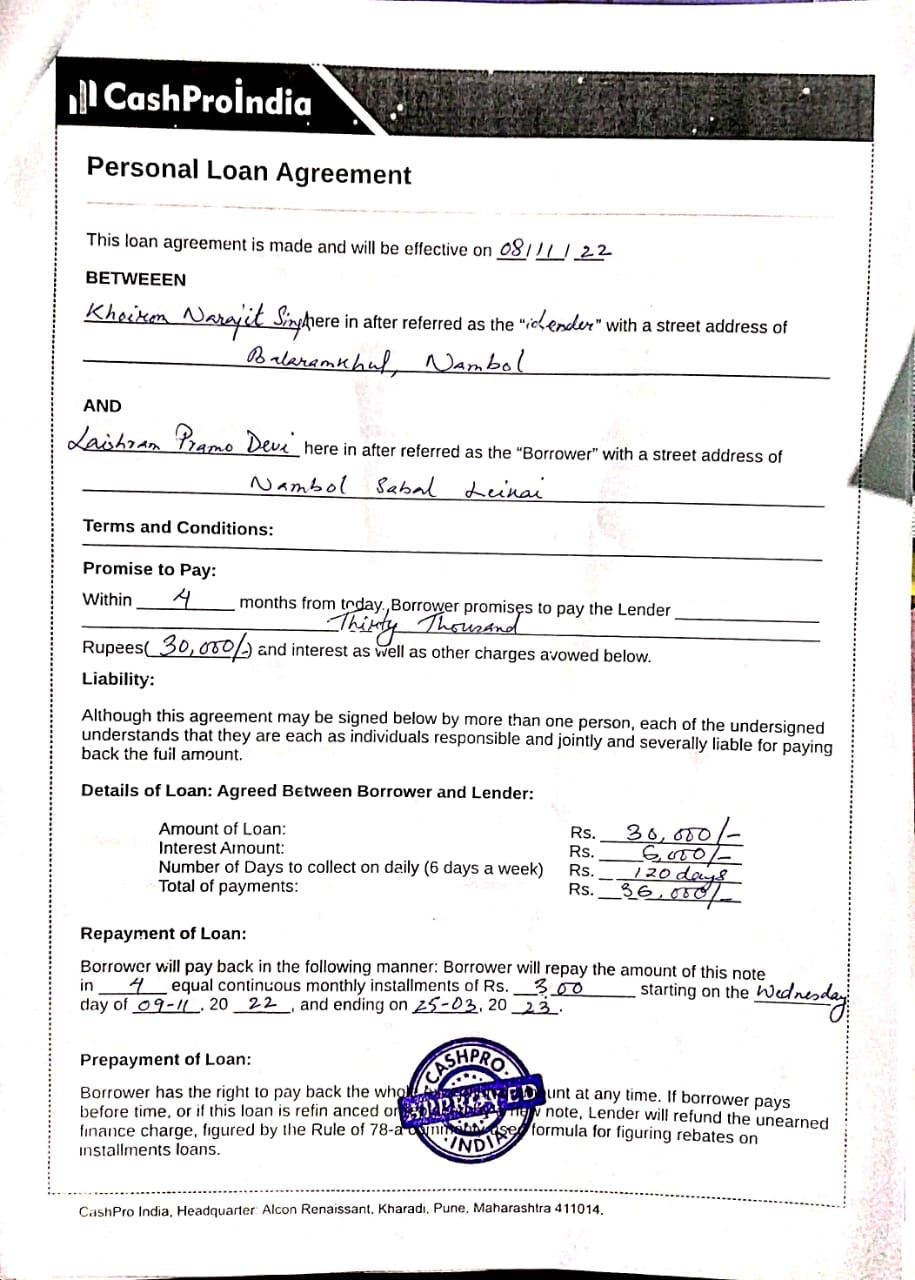 CashProIndia
Personal Loan Agreement
This loan agreement is made and will be effective on 08/11/22
BETWEEEN
Khoirom Narajit Singh here in after referred as the “Lender” with a street address of
Balaramkhul, Nambol
AND
Laishram Pramo Devi here in after referred as the “Borrower” with a street address of
Nambol Sabal Leikai
Terms and Conditions:
Promise to Pay:
Within 4 months from today, Borrower promises to pay the Lender
Thirty Thousand
Rupees( 30,000/-) and interest as well as other charges avowed below.
Liability:
Although this agreement may be signed below by more than one person, each of the undersigned
understands that they are each as individuals responsible and jointly and severally liable for paying
back the full amount.
Details of Loan: Agreed Between Borrower and Lender:
Amount of Loan: Rs. 30,000/-
Interest Amount: Rs. 6,000/-
Number of Days to collect on daily (6 days a week) Rs. 120 days
Total of payments: Rs. 36,000/-
Repayment of Loan:
Borrower will pay back in the following manner: Borrower will repay the amount of this note
in 4 equal continuous monthly installments of Rs. 300 starting on the Wednesday
day of 09-11, 20 22, and ending on 25-03, 20 23.
Prepayment of Loan:
Borrower has the right to pay back the whole unt at any time. If borrower pays
before time, or if this loan is refin anced or note, Lender will refund the unearned
finance charge, figured by the Rule of 78-a formula for figuring rebates on
installments loans.
CASHPRO
APPROVED
INDIA
CashPro India, Headquarter: Alcon Renaissant, Kharadi, Pune, Maharashtra 411014.